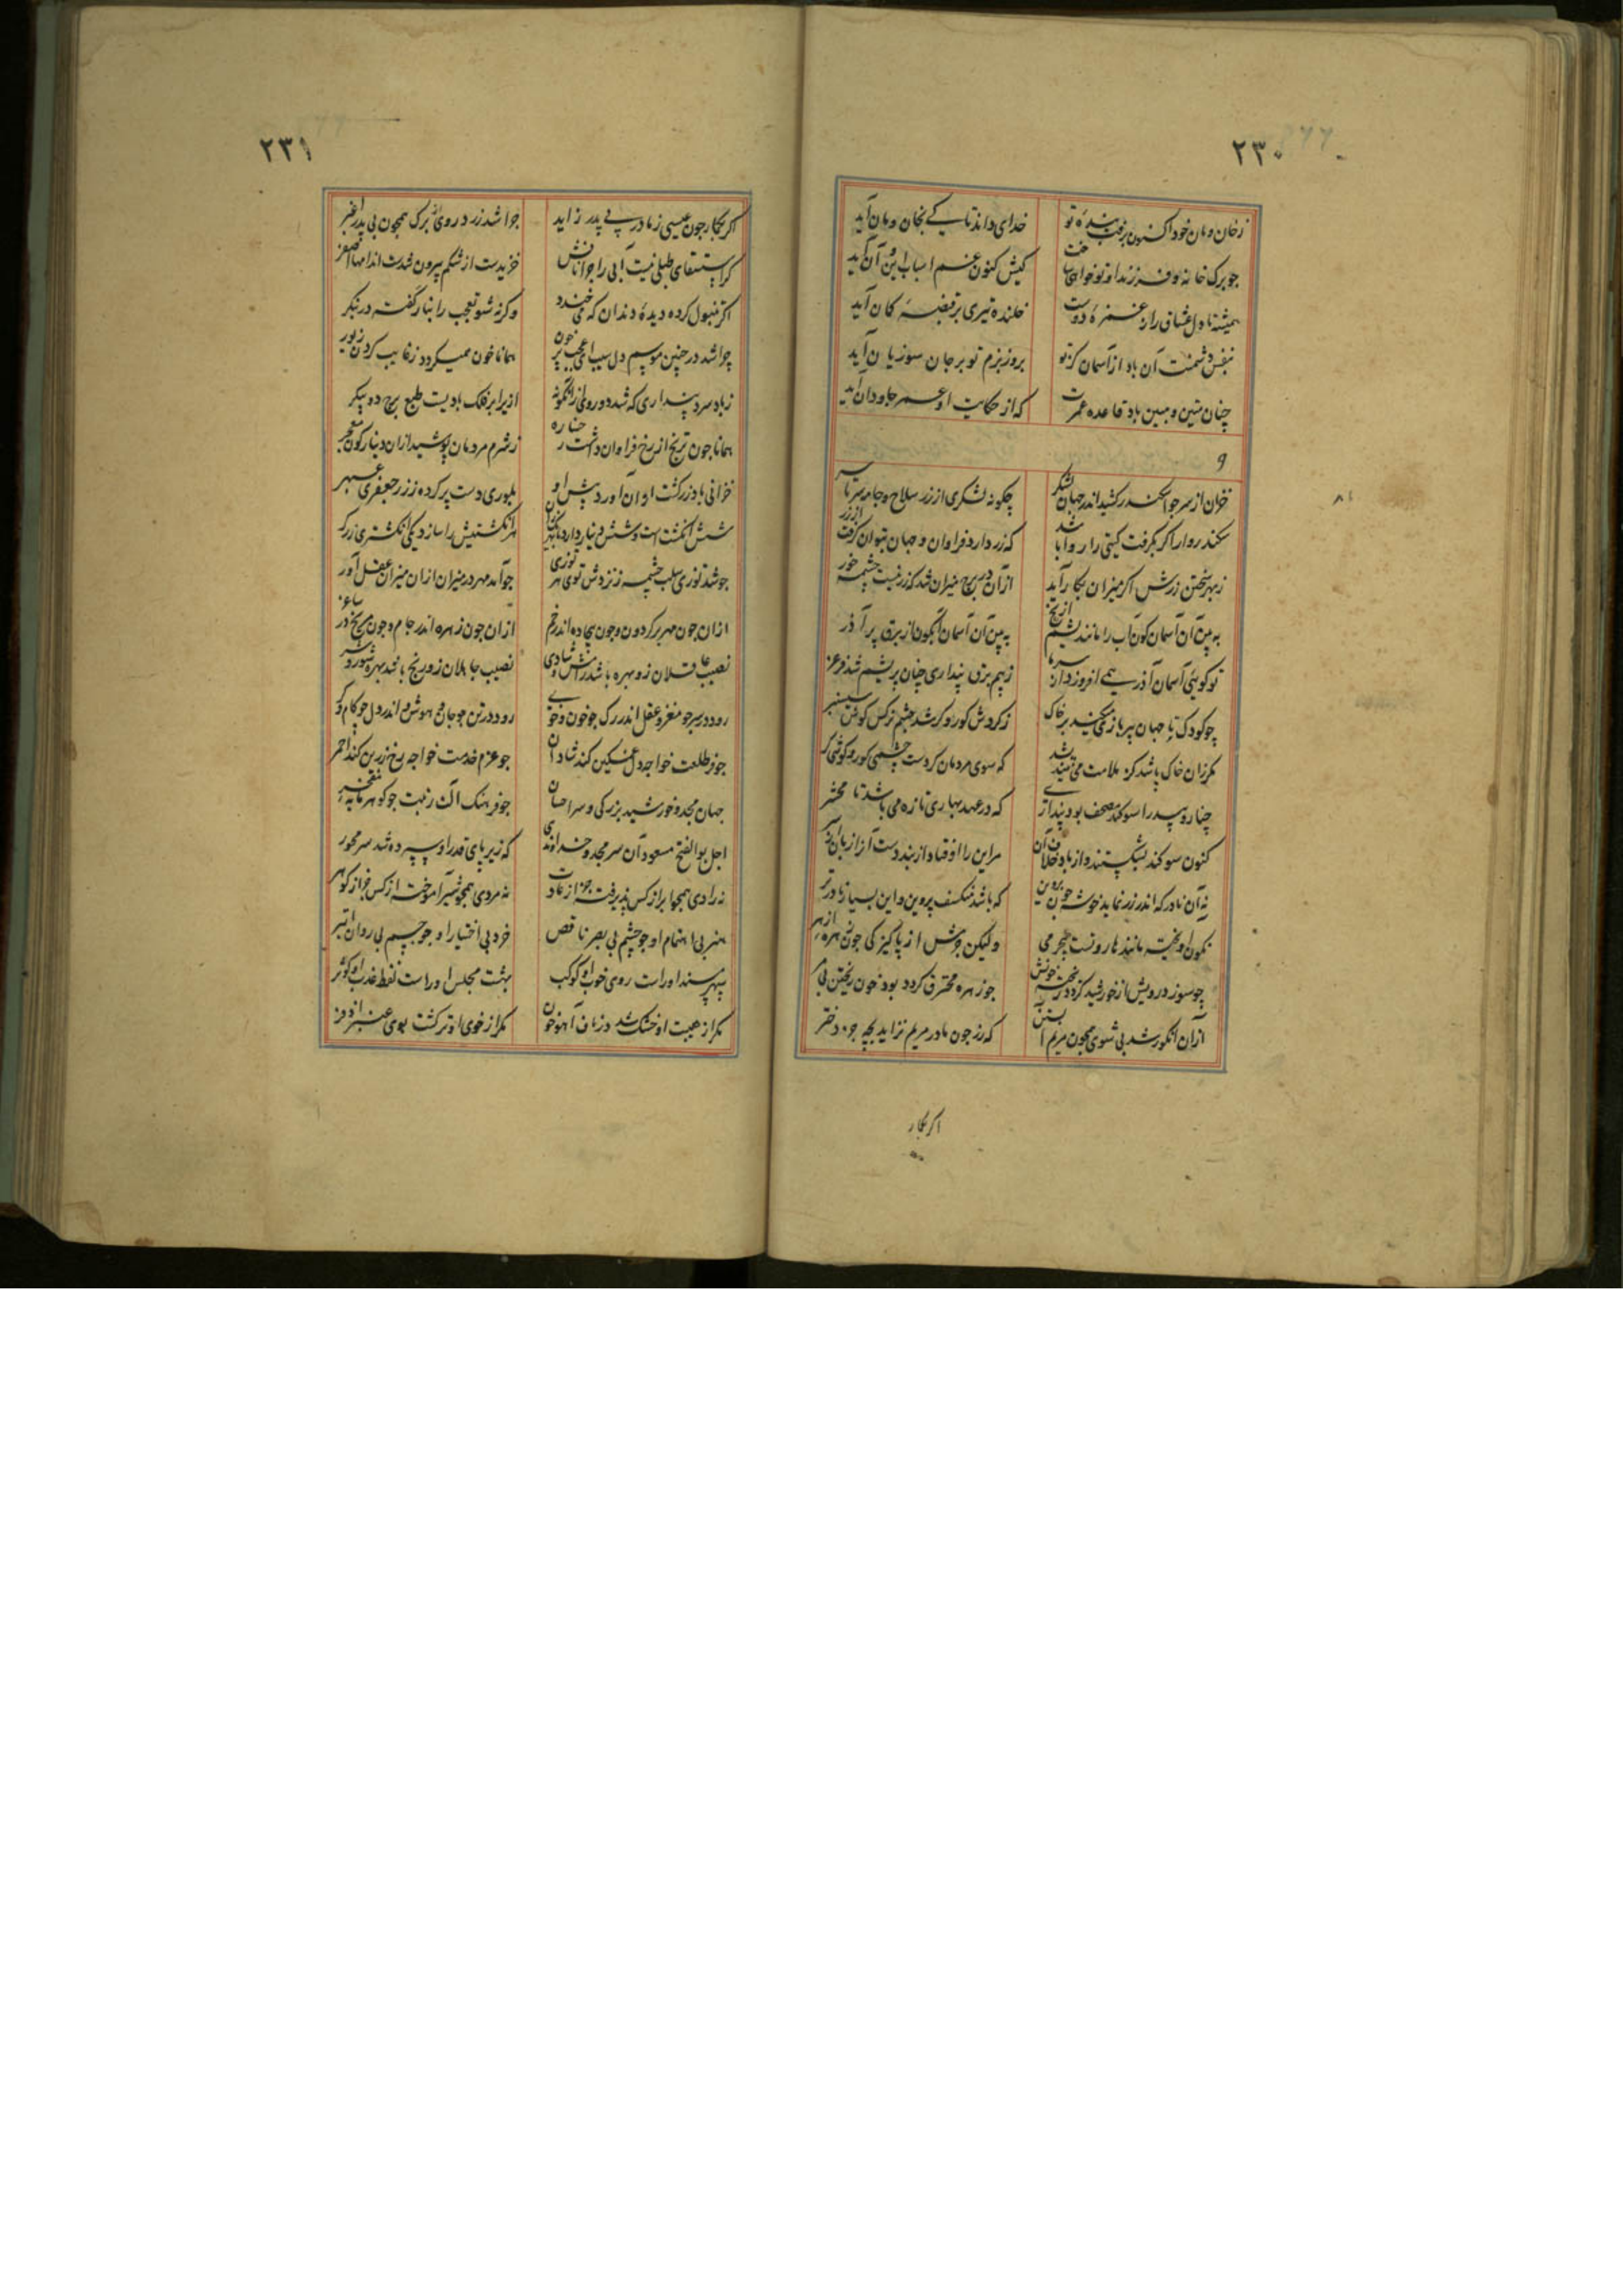 ۲۳۰
ز خان و مان خود اکنون برفت بنده تو خدای داند تا کی بخان و مان آید
چو برک خانه و فرزند او تو خواهی ساخت کیش کنون غم اسباب این و آن آید
همیشه تا دل عشاق را ز غمزه دوست خلنده تیری بر قبضه کمان آید
بنفس دشمنت آن باد از آسمان کز تو بروز بزم تو بر جان سوزیان آید
چنان متین و مبین باد قاعده عمرت که از حکایت او عمر جاودان آید
و
خزان از سر جو اسکندر کشید اندر جهان لشکر چکونه لشکری از زر سلاح و جامه سر تا سر
سکندر وار اکر بکرفت کیتی را روا باشد که زر دارد فراوان و جهان بتوان کرفت از زر
ز بهر سختن زرش اکر میزان بکار آید از آن در برج میزان شد که زر نیست چشمه خور
ببین آن آسمان کون آب را مانند یشم از یخ ببین آن آسمان آبکون از برق پر آذر
تو کوئی آسمان آذر همی افروزد از سرما ز بیم برق پنداری چنان پر یشم شد فرغر
چو کودک با جهان پیر بازی میکند بر خاک ز کردش کور و کر شد چشم نرکس کوش سیسنبر
مکر زان خاک باشد کز ملامت می نیندیشد که سوی مردمان کردست چشمی کور و کوشی کر
چنار و بید را سوکند مصحف بود پنداری که در عهد بهاری تازه می باشد تا محشر
کنون سوکند بشکستند و از باد خلاف آن مر این را اوفتاد از بند دست آنرا زبان از سر
نه آن نادر که اندر زر نماید خوشه چون پروین که باشد منکسف پروین و این بسیار نادرتر
نکون آویخته مانند هاروتست بیجرمی ولیکن جرمش از پاکیزکی چون زهره ازهر
چو سوزد رویش از خورشید کردد ریختن خونش جو زهره محترق کردد بود خون ریختن بی مر
از آن انکور شد بی شوی همچون مریم آبستن که رز چون مادر مریم نزاید بچه جز دختر
اکر بکار
۲۳۱
اکر بکار جون عیسی ز مادر بی پدر زاید جرا شد زرد روی برک همچون بی پدر اغبر
کر استسقای طبلی نیست آبی را جرا نافش خزیدست از شکم بیرون شدست اندامها اصفر
اکر تنبول کرده دیده دندان که می خندد وکرنه شو تعجب را بنار کفته در بنکر
چرا شد در چنین موسم دل سیب ای عجب پر خون همانا خون همیکردد ز غایب کردن زیور
ز باد سرد پنداری که شد دو روی زانکونه ازیرا بر فلک بادیست طبع برج دو پیکر
همانا جون ترنج از رخ فراوان داشت رخساره ز شرم مردمان پوشید ازان دینارکون معجر
خزانی باد زرکشت اوان آورد پیش او بلوری دست پر کرده ز زر جعفری عبهر
شش انکشت است و شش دینار دارد نابهر انکشتیش را سازد یکی انکشتری زرکر
جو شد توزی سلب چشمه ز نزدش توی بر توزی جو آمد مهر در میزان ازان میزان عقل آور
ازان جون مهر بر کردون و جون بیجاده اندر خم ازان جون زهره اندر جام و جون مریخ در ساغر
نصیب عاقلان زو بهره باشد رامش و شادی نصیب جاهلان زو رنج باشد بهره شور و شر
رود در سر جو مغز و عقل اندر رک جو خون و خوی رود در تن جو جان و هوش اندر دل جو کام و کر
جو فر طلعت خواجه دل غمکین کند شادان جو عزم خدمت خواجه رخ زرین کند احمر
جهان مجد و خورشید بزرکی و سر احسان جو فرهنک آلت زینت جو کوهر مایه مفخر
اجل بوالفتح مسعود آن سر مجد و خداوندی که زیر پای قدر او سپرده شد سر محور
نه رادی همجو ابر از کس پذیرفته جز از عادت نه مردی همجو شیر آموخته از کس جز از کوهر
هنر بی اهتمام او جو چشم بی بصر ناقص خرد بی اختیار او جو جسم بی روان ابتر
سپهر مسند او راست روی خوب او کوکب بهشت مجلس او راست لفظ عذب او کوثر
مکر از هیبت او خشک شد در ناف آهو خون مکر از خوی او تر کشت بوی عنبر اندر بر